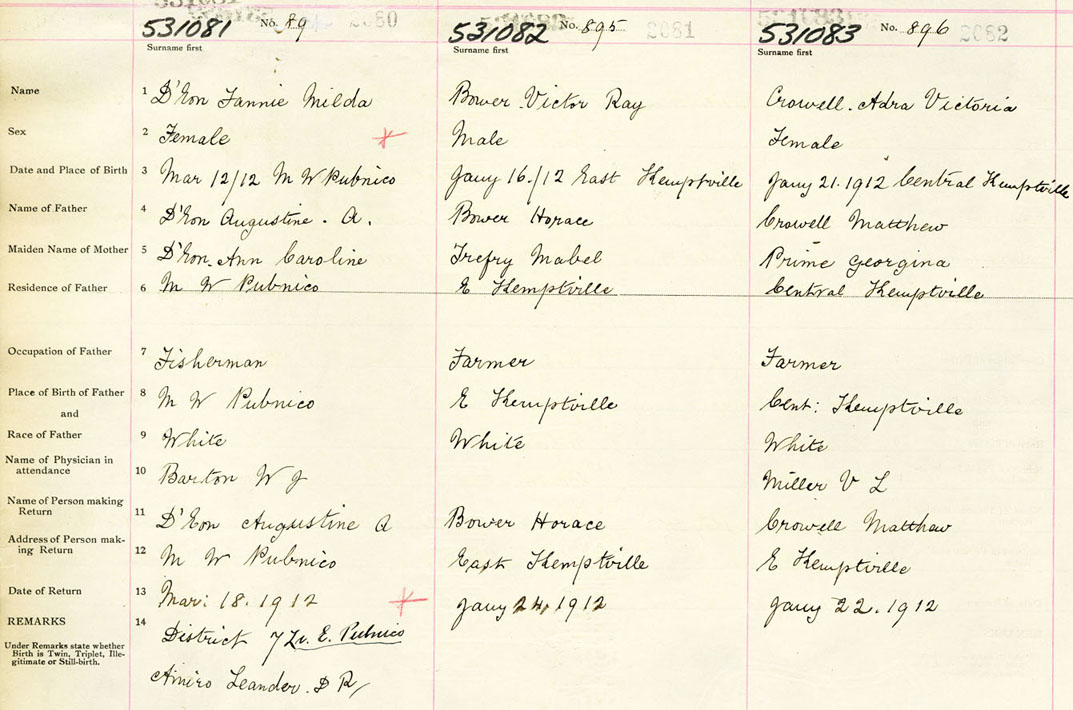 531081 No. 89 2080 531082 No. 895 2081 531083 No. 896 2082
Surname first Surname first Surname first
Name 1 D'Eon Fannie Milda Bower Victor Ray Crowell. Adra Victoria
Sex 2 Female Male Female
Date and Place of Birth 3 Mar 12/12 M W Pubnico Jany 16./12 East Kemptville Jany 21. 1912 Central Kemptville
Name of Father 4 D'Eon Augustine. A. Bower Horace Crowell Matthew
Maiden Name of Mother 5 D'Eon. Ann Caroline Trefry Mabel Prime Georgina
Residence of Father 6 M W Pubnico E Kemptville Central Kemptville
Occupation of Father 7 Fisherman Farmer Farmer
Place of Birth of Father 8 M W Pubnico E Kemptville Cent: Kemptville
and
Race of Father 9 White White White
Name of Physician in
attendance 10 Barton W J Miller V L
Name of Person making
Return 11 D'Eon Augustine A Bower Horace Crowell Matthew
Address of Person mak-
ing Return 12 M W Pubnico East Kemptville E Kemptville
Date of Return 13 Mar: 18. 1912 Jany 24, 1912 Jany 22. 1912
REMARKS 14 District 7 E. Pubnico
Under Remarks state whether
Birth is Twin, Triplet, Ille-
gitimate or Still-birth.
Amiro Leander. D R